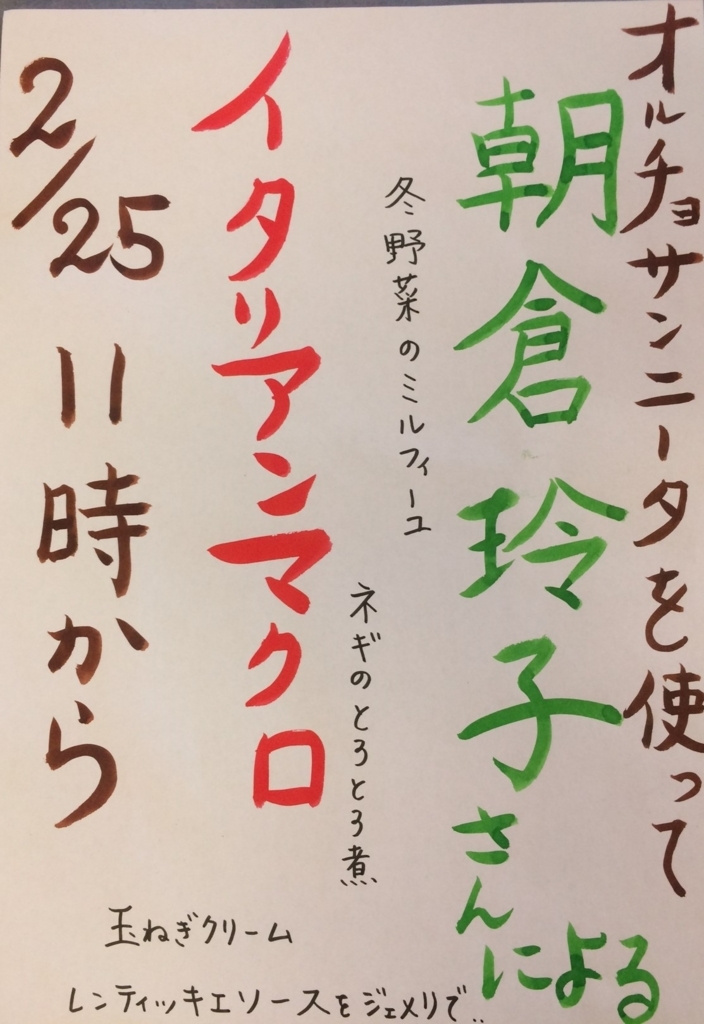 オルチョサンニータを使って
朝倉玲子さんによる
冬野菜のミルフィーユ
ネギのとろとろ煮
イタリアンマクロ
2/25 11時から
玉ねぎクリーム
レンティッキエソースをジェメリで..